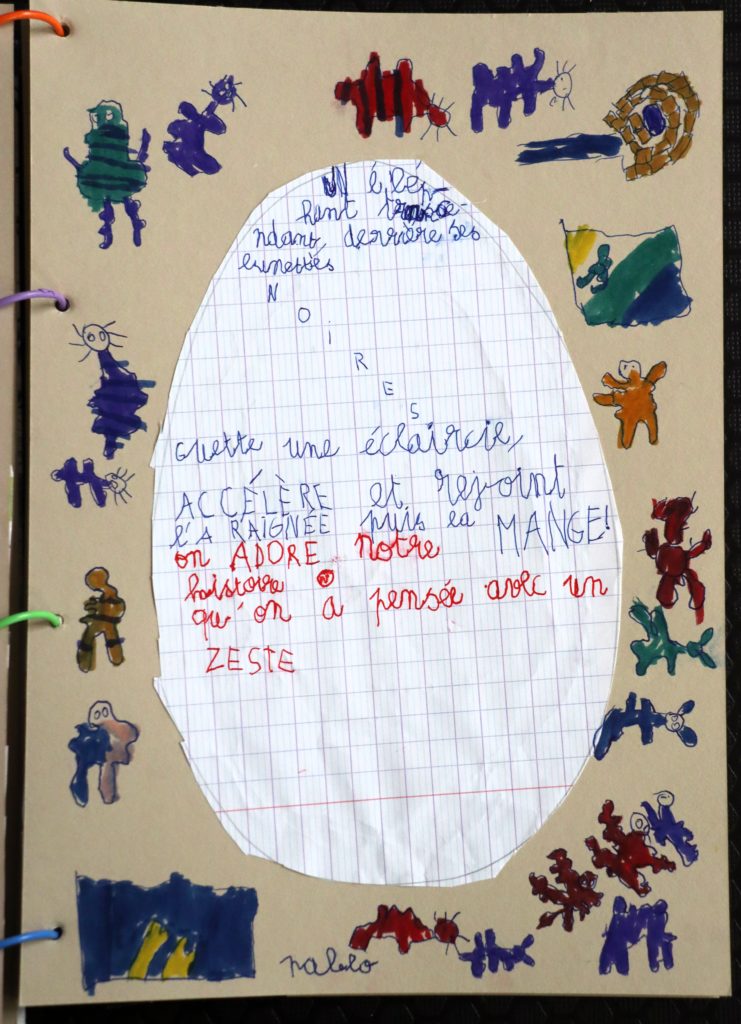 UN élép-
hant trompe-
ndant, derrière ses
lunettes
N
O
i
R
E
S
Guette une éclaircie,
ACCÉLÈRE et rejoint
l'ARAIGNÉE puis la MANGE!
on ADORE Notre
histoire
qu'on a pensée avec un
ZESTE
pablo